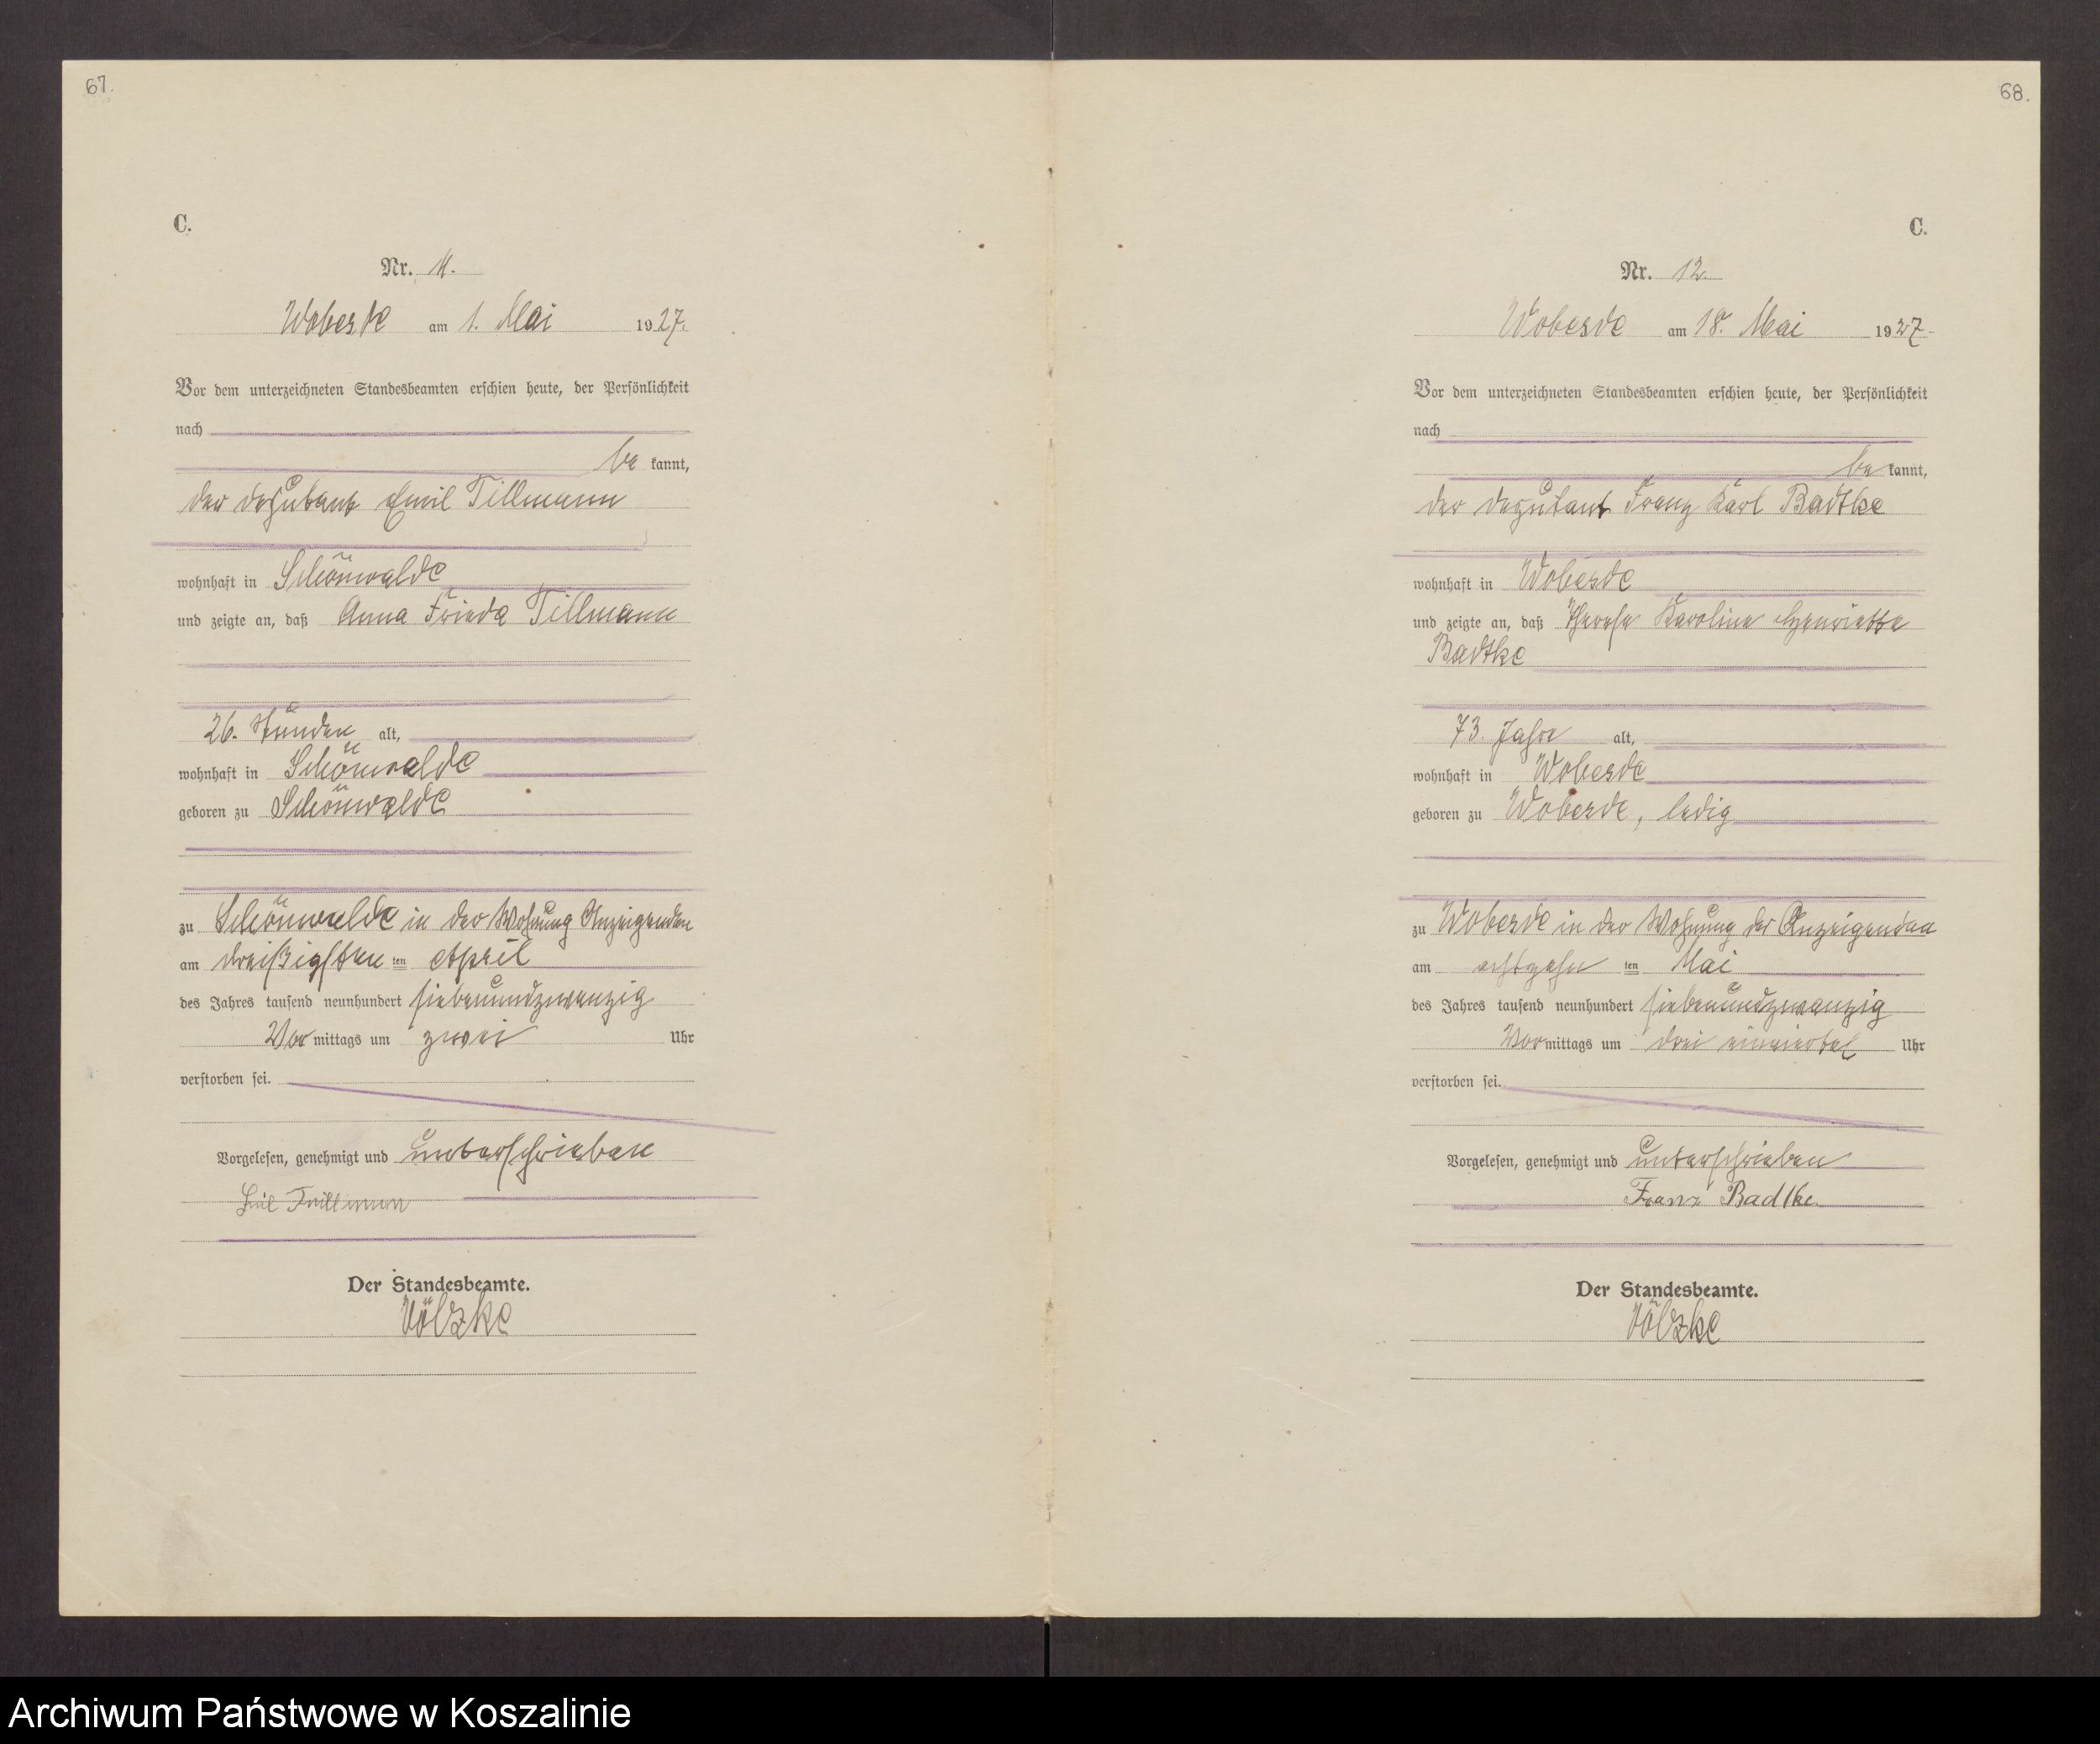 67.
C.
Nr. 11.
Wobesde am 1. Mai 1927.
Vor dem unterzeichneten Standesbeamten erschien heute, der Persönlichkeit
nach
be kannt,
der Deputant Emil Tillmann
wohnhaft in Schönwalde
und zeigte an, daß Anna Frieda Tillmann
26. Stunden alt,
wohnhaft in Schönwalde
geboren zu Schönwalde
zu Schönwalde in der Wohnung Anzeigenden
am dreißigsten ten April
des Jahres tausend neunhundert siebenundzwanzig
Vor mittags um zwei Uhr
verstorben sei.
Vorgelesen, genehmigt und unterschrieben
Der Standesbeamte.
Völzke
68.
C.
Nr. 12.
Wobesde am 18. Mai 1927
Vor dem unterzeichneten Standesbeamten erschien heute, der Persönlichkeit
nach
be kannt,
der Deputant Franz Karl Badtke
wohnhaft in Wobesde
und zeigte an, daß Therese Karoline Henriette
Badtke
73. Jahre alt,
wohnhaft in Wobesde
geboren zu Wobesde, ledig
zu Wobesde in der Wohnung des Anzeigenden
am achtzehn ten Mai
des Jahres tausend neunhundert siebenundzwanzig
Vor mittags um drei einviertel Uhr
verstorben sei.
Vorgelesen, genehmigt und unterschrieben
Franz Badtke
Der Standesbeamte.
Völzke
Archiwum Państwowe w Koszalinie